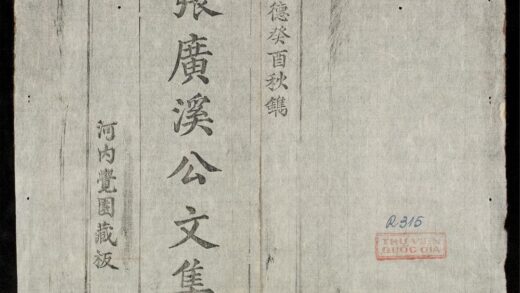 德癸酉秋鐫
張廣溪公文集
河内覺園藏板
R 315
THƯ VIỆN
QUỐC GIA